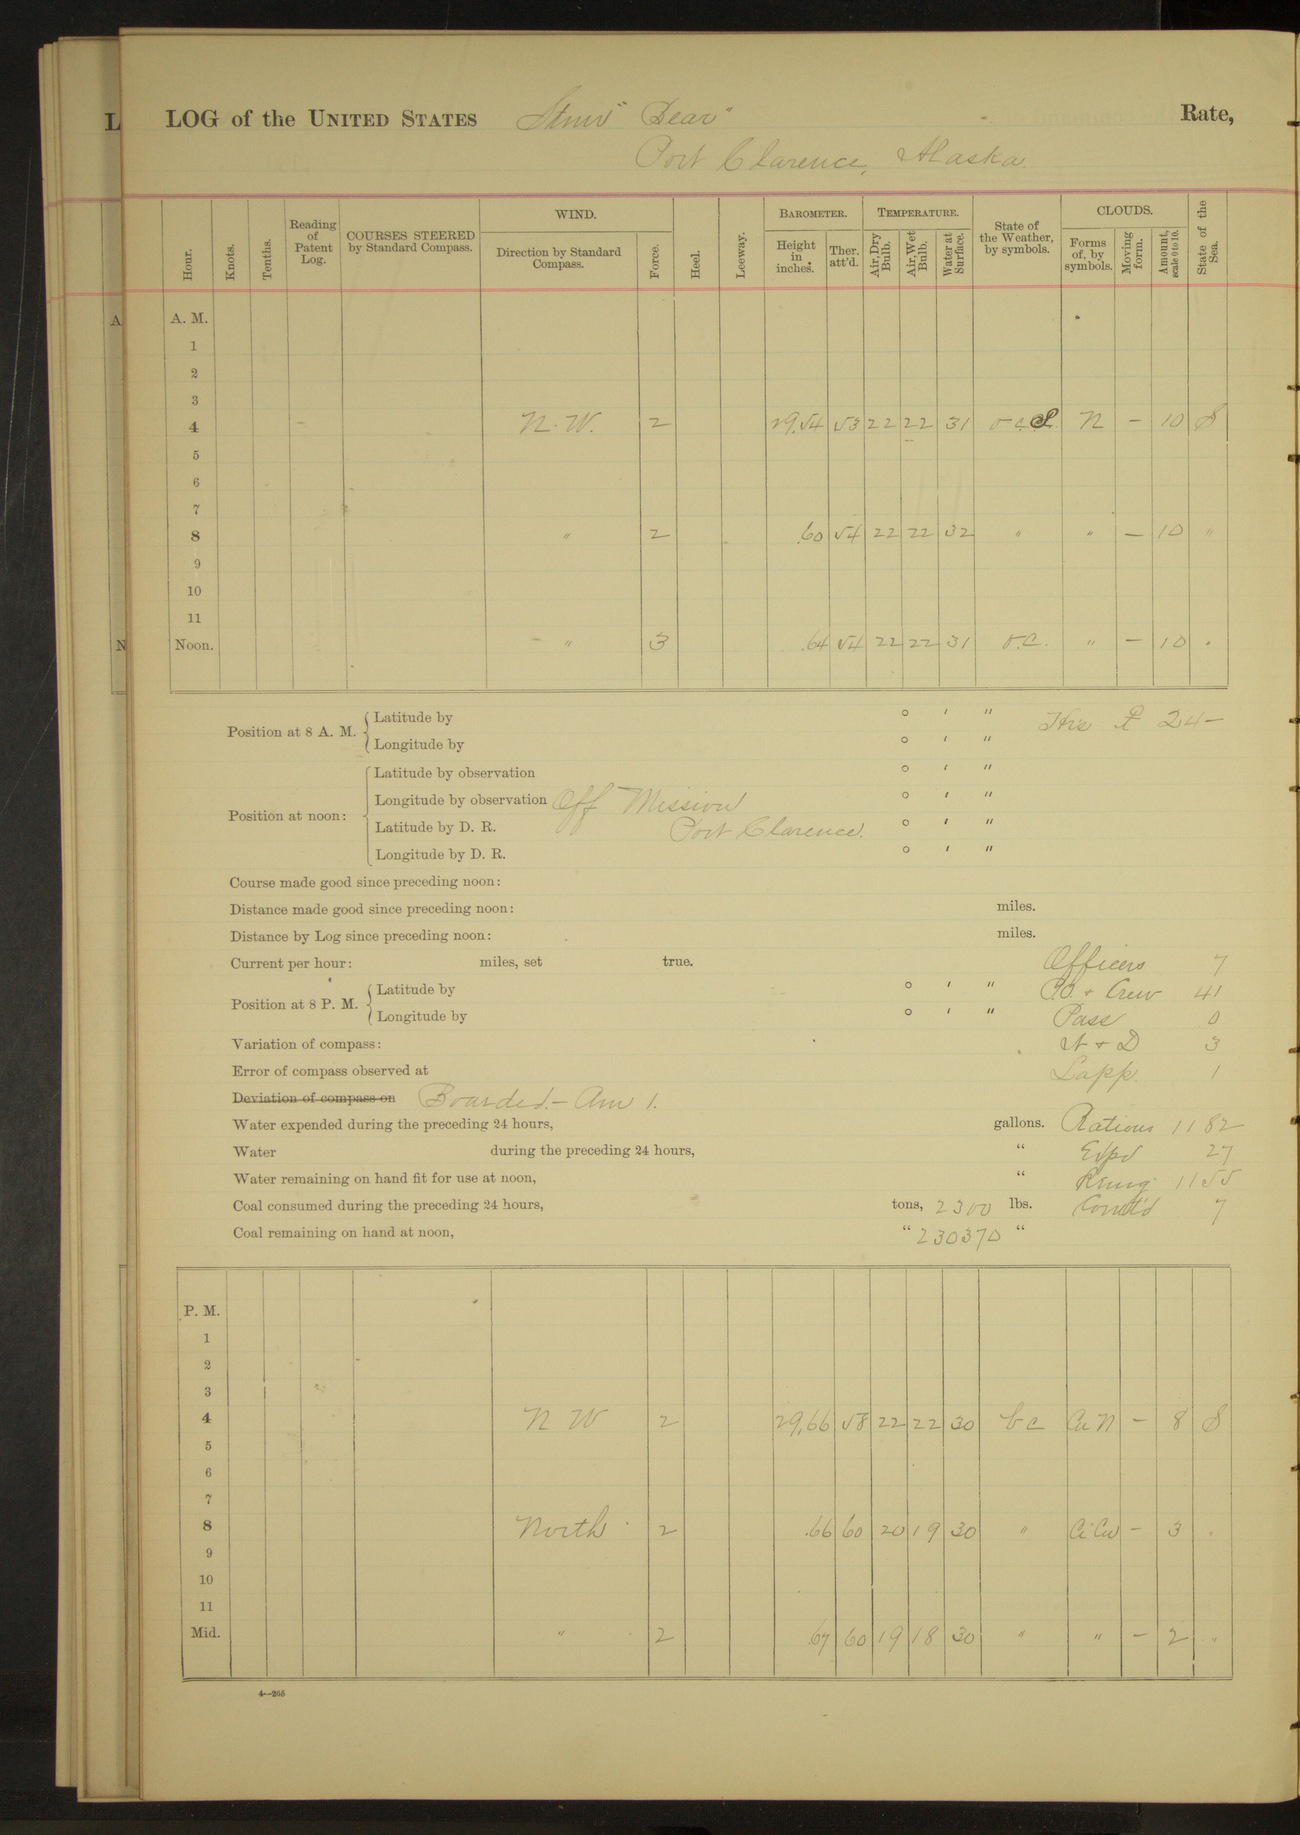 LOG of the UNITED STATES Stmr "Bear" Rate,
Port Clarence, Alaska
Hour. Knots. Tenths. Reading of Patent Log. COURSES STEERED by Standard Compass. WIND. Direction by Standard Compass. Force. Heel. Leeway. BAROMETER. Height in inches. Ther. att'd. TEMPERATURE. Air, Dry Bulb. Air, Wet Bulb. Water at Surface. State of the Weather, by symbols. CLOUDS. Forms of, by symbols. Moving form. Amount, scale 0 to 10. State of the Sea.
A. M.
1
2
3
4 N. W. 2 29.54 53 22 22 31 o.c.s. N – 10 S
5
6
7
8 " 2 .60 54 22 22 32 " " – 10 "
9
10
11
Noon. " 3 .64 54 22 22 31 o.c. " – 10 "
Position at 8 A. M. Latitude by ° ′ ″ 24 –
Longitude by ° ′ ″
Position at noon: Latitude by observation ° ′ ″
Longitude by observation Off Mission ° ′ ″
Latitude by D. R. Port Clarence. ° ′ ″
Longitude by D. R. ° ′ ″
Course made good since preceding noon:
Distance made good since preceding noon: miles.
Distance by Log since preceding noon: miles.
Current per hour: miles, set true. Officers 7
Position at 8 P. M. Latitude by ° ′ ″ P.O. + Crew 41
Longitude by ° ′ ″ Pass 0
Variation of compass: N + D 3
Error of compass observed at Lapp. 1
Deviation of compass on Boarded. – Am 1.
Water expended during the preceding 24 hours, gallons. Rations 1182
Water during the preceding 24 hours, " Expd 27
Water remaining on hand fit for use at noon, " Remg 1155
Coal consumed during the preceding 24 hours, tons, 2300 lbs. Comt'd 7
Coal remaining on hand at noon, " 230370 "
P. M.
1
2
3
4 N W 2 29.66 58 22 22 30 b c Cu N – 8 S
5
6
7
8 North 2 .66 60 20 19 30 " Ci Cu – 3 "
9
10
11
Mid. " 2 .67 60 19 18 30 " " – 2 "
4—265